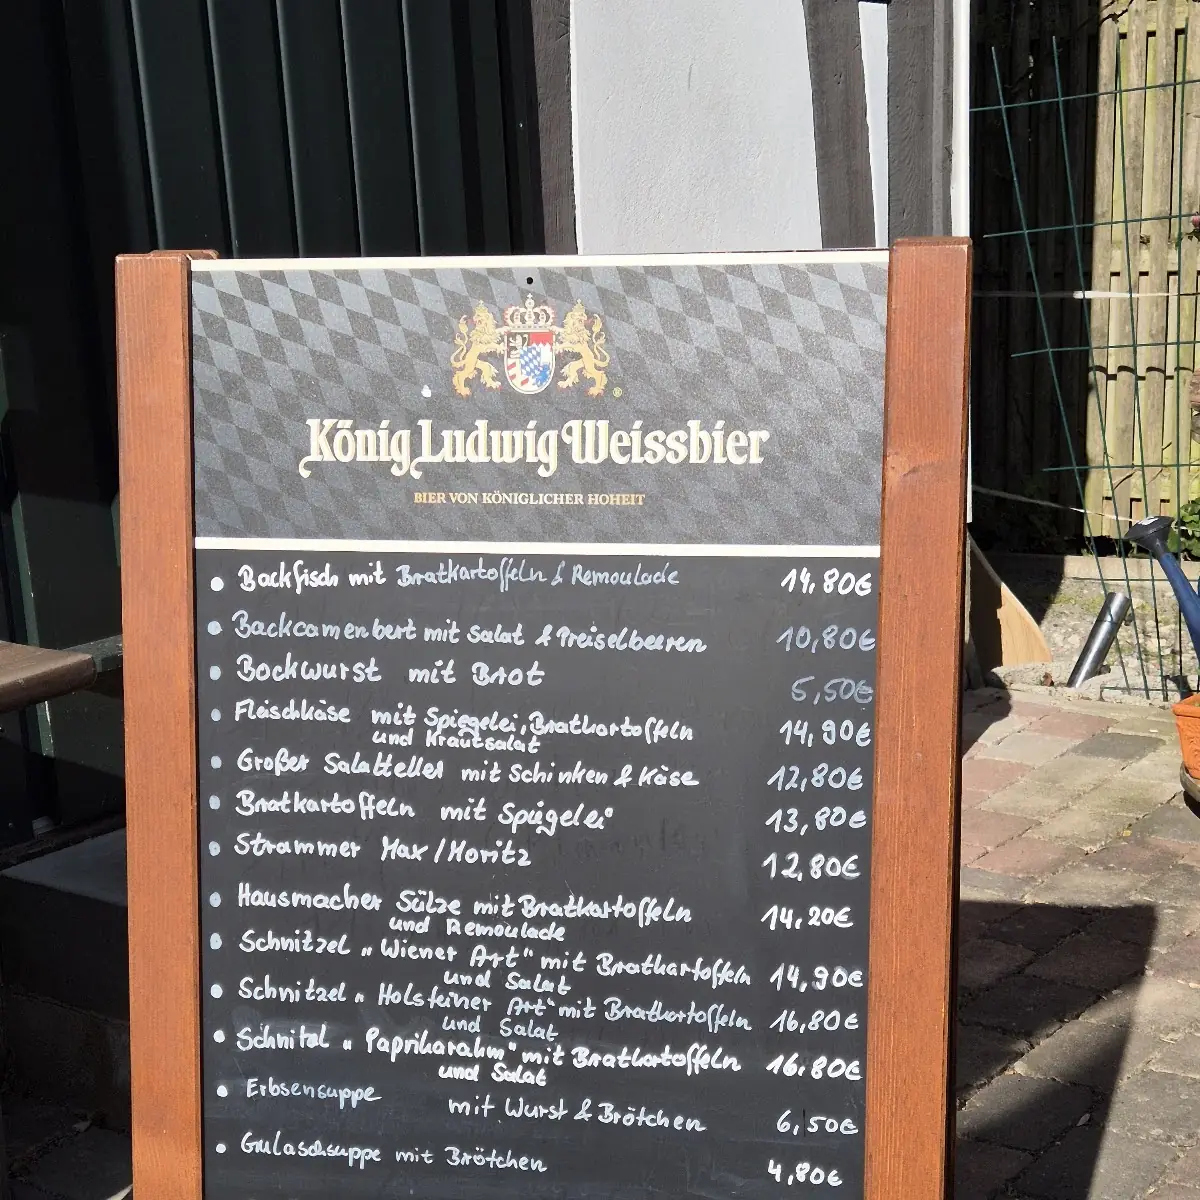 König Ludwig Weissbier
BIER VON KÖNIGLICHER HOHEIT
• Backfisch mit Bratkartoffeln & Remoulade 14,80€
• Backcamenbert mit Salat & Preiselbeeren 10,80€
• Bockwurst mit Brot 5,50€
• Fleischkäse mit Spiegelei, Bratkartoffeln 14,90€
und Krautsalat
• Großer Salatteller mit Schinken & Käse 12,80€
• Bratkartoffeln mit Spiegelei 13,80€
• Strammer Max/Moritz 12,80€
• Hausmacher Sülze mit Bratkartoffeln 14,20€
und Remoulade
• Schnitzel „Wiener Art" mit Bratkartoffeln 14,90€
und Salat
• Schnitzel „Holsteiner Art" mit Bratkartoffeln 16,80€
und Salat
• Schnitzel „Paprikarahm" mit Bratkartoffeln 16,80€
und Salat
• Erbsensuppe mit Wurst & Brötchen 6,50€
• Gulaschsuppe mit Brötchen 4,80€